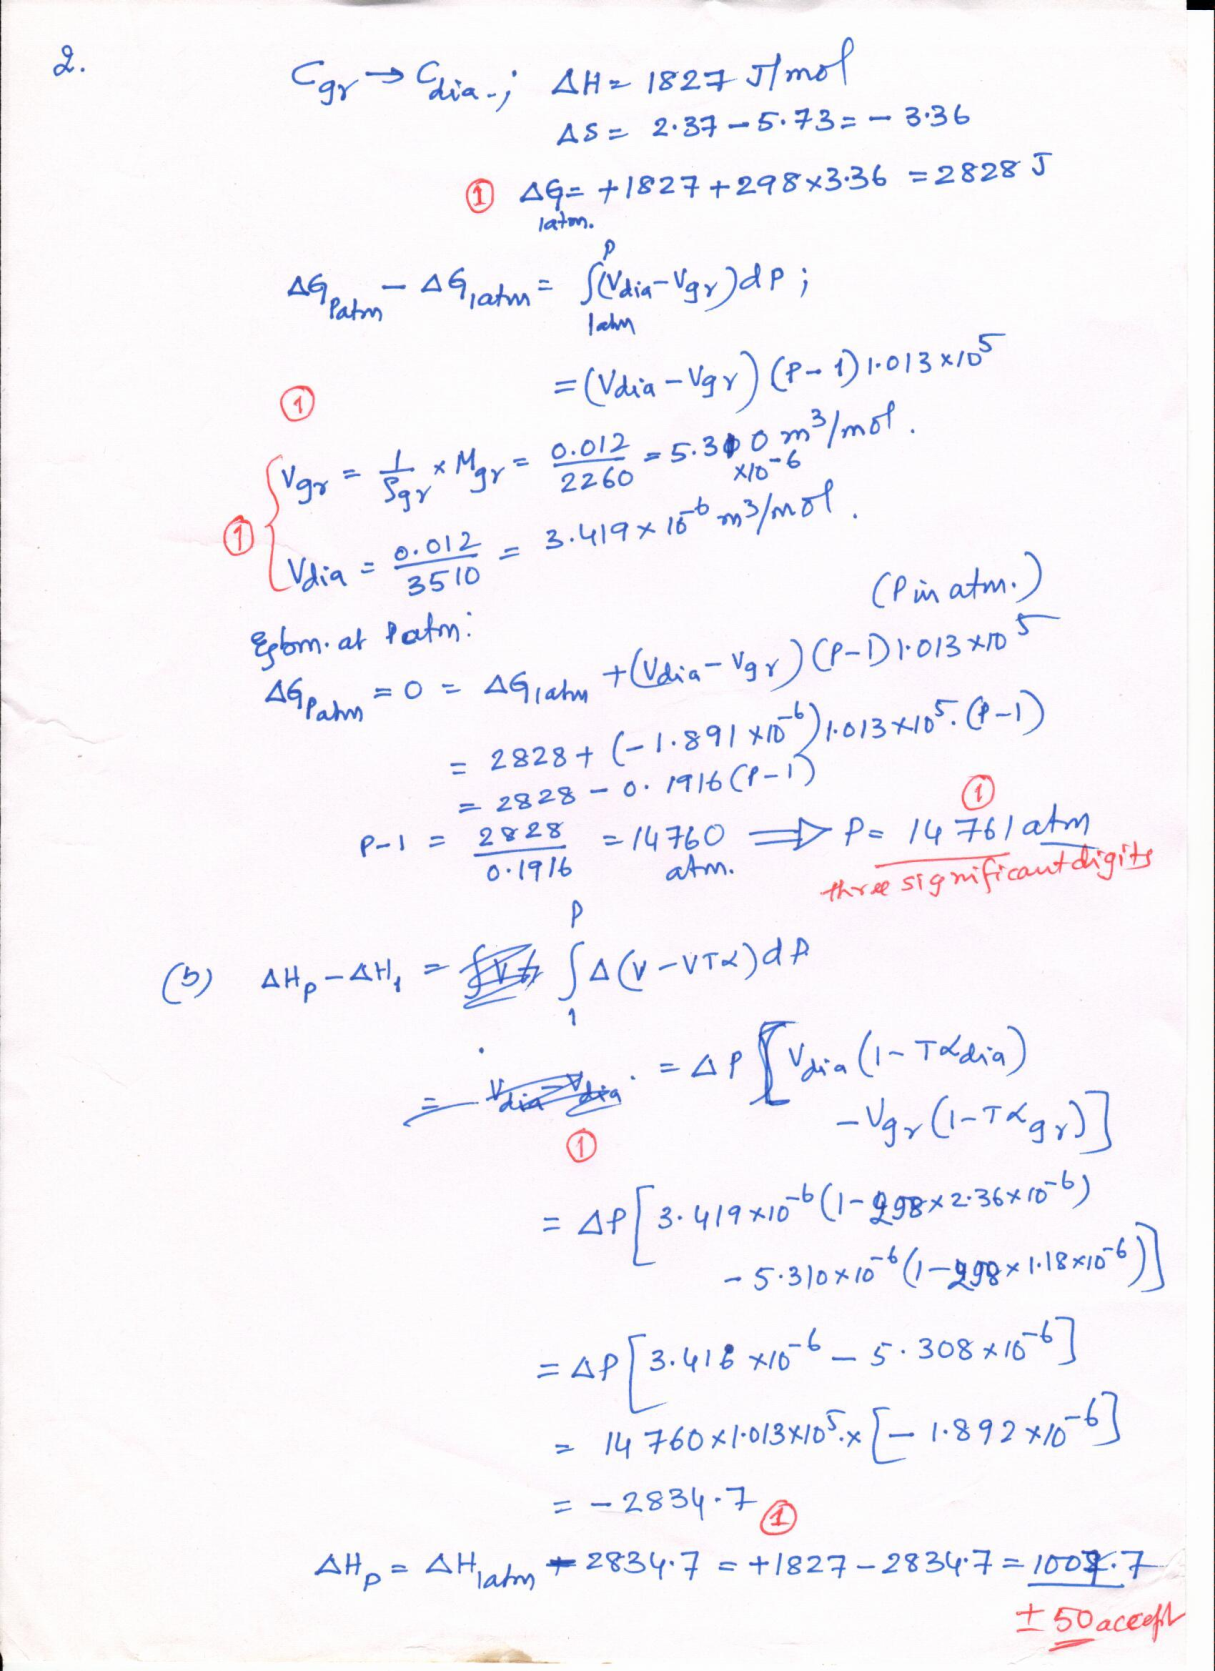 2.
C_gr → C_dia.; ΔH = 1827 J/mol
ΔS = 2.37 - 5.73 = - 3.36
① ΔG_1atm. = +1827 + 298 × 3.36 = 2828 J
ΔG_Patm - ΔG_1atm = ∫_1atm^P (V_dia - V_gr) dP ;
= (V_dia - V_gr) (P - 1) 1.013 × 10^5
①
V_gr = 1/ρ_gr × M_gr = 0.012/2260 = 5.310 × 10^-6 m^3/mol.
①
V_dia = 0.012/3510 = 3.419 × 10^-6 m^3/mol.
(P in atm.)
Eqbm. at P atm:
ΔG_Patm = 0 = ΔG_1atm + (V_dia - V_gr) (P-1) 1.013 × 10^5
= 2828 + (-1.891 × 10^-6) 1.013 × 10^5. (P-1)
= 2828 - 0.1916 (P-1)
①
P-1 = 2828/0.1916 = 14760 atm. ⟹ P = 14761 atm
three significant digits
(b) ΔH_P - ΔH_1 = ∫_1^P Δ(V - VTα) dP
= ΔP [V_dia (1 - Tα_dia)
- V_gr (1 - Tα_gr)]
①
= ΔP [3.419 × 10^-6 (1 - 298 × 2.36 × 10^-6)
- 5.310 × 10^-6 (1 - 298 × 1.18 × 10^-6)]
= ΔP [3.416 × 10^-6 - 5.308 × 10^-6]
= 14760 × 1.013 × 10^5. × [- 1.892 × 10^-6]
= - 2834.7
①
ΔH_P = ΔH_1atm - 2834.7 = +1827 - 2834.7 = 1007.7
± 50 accept